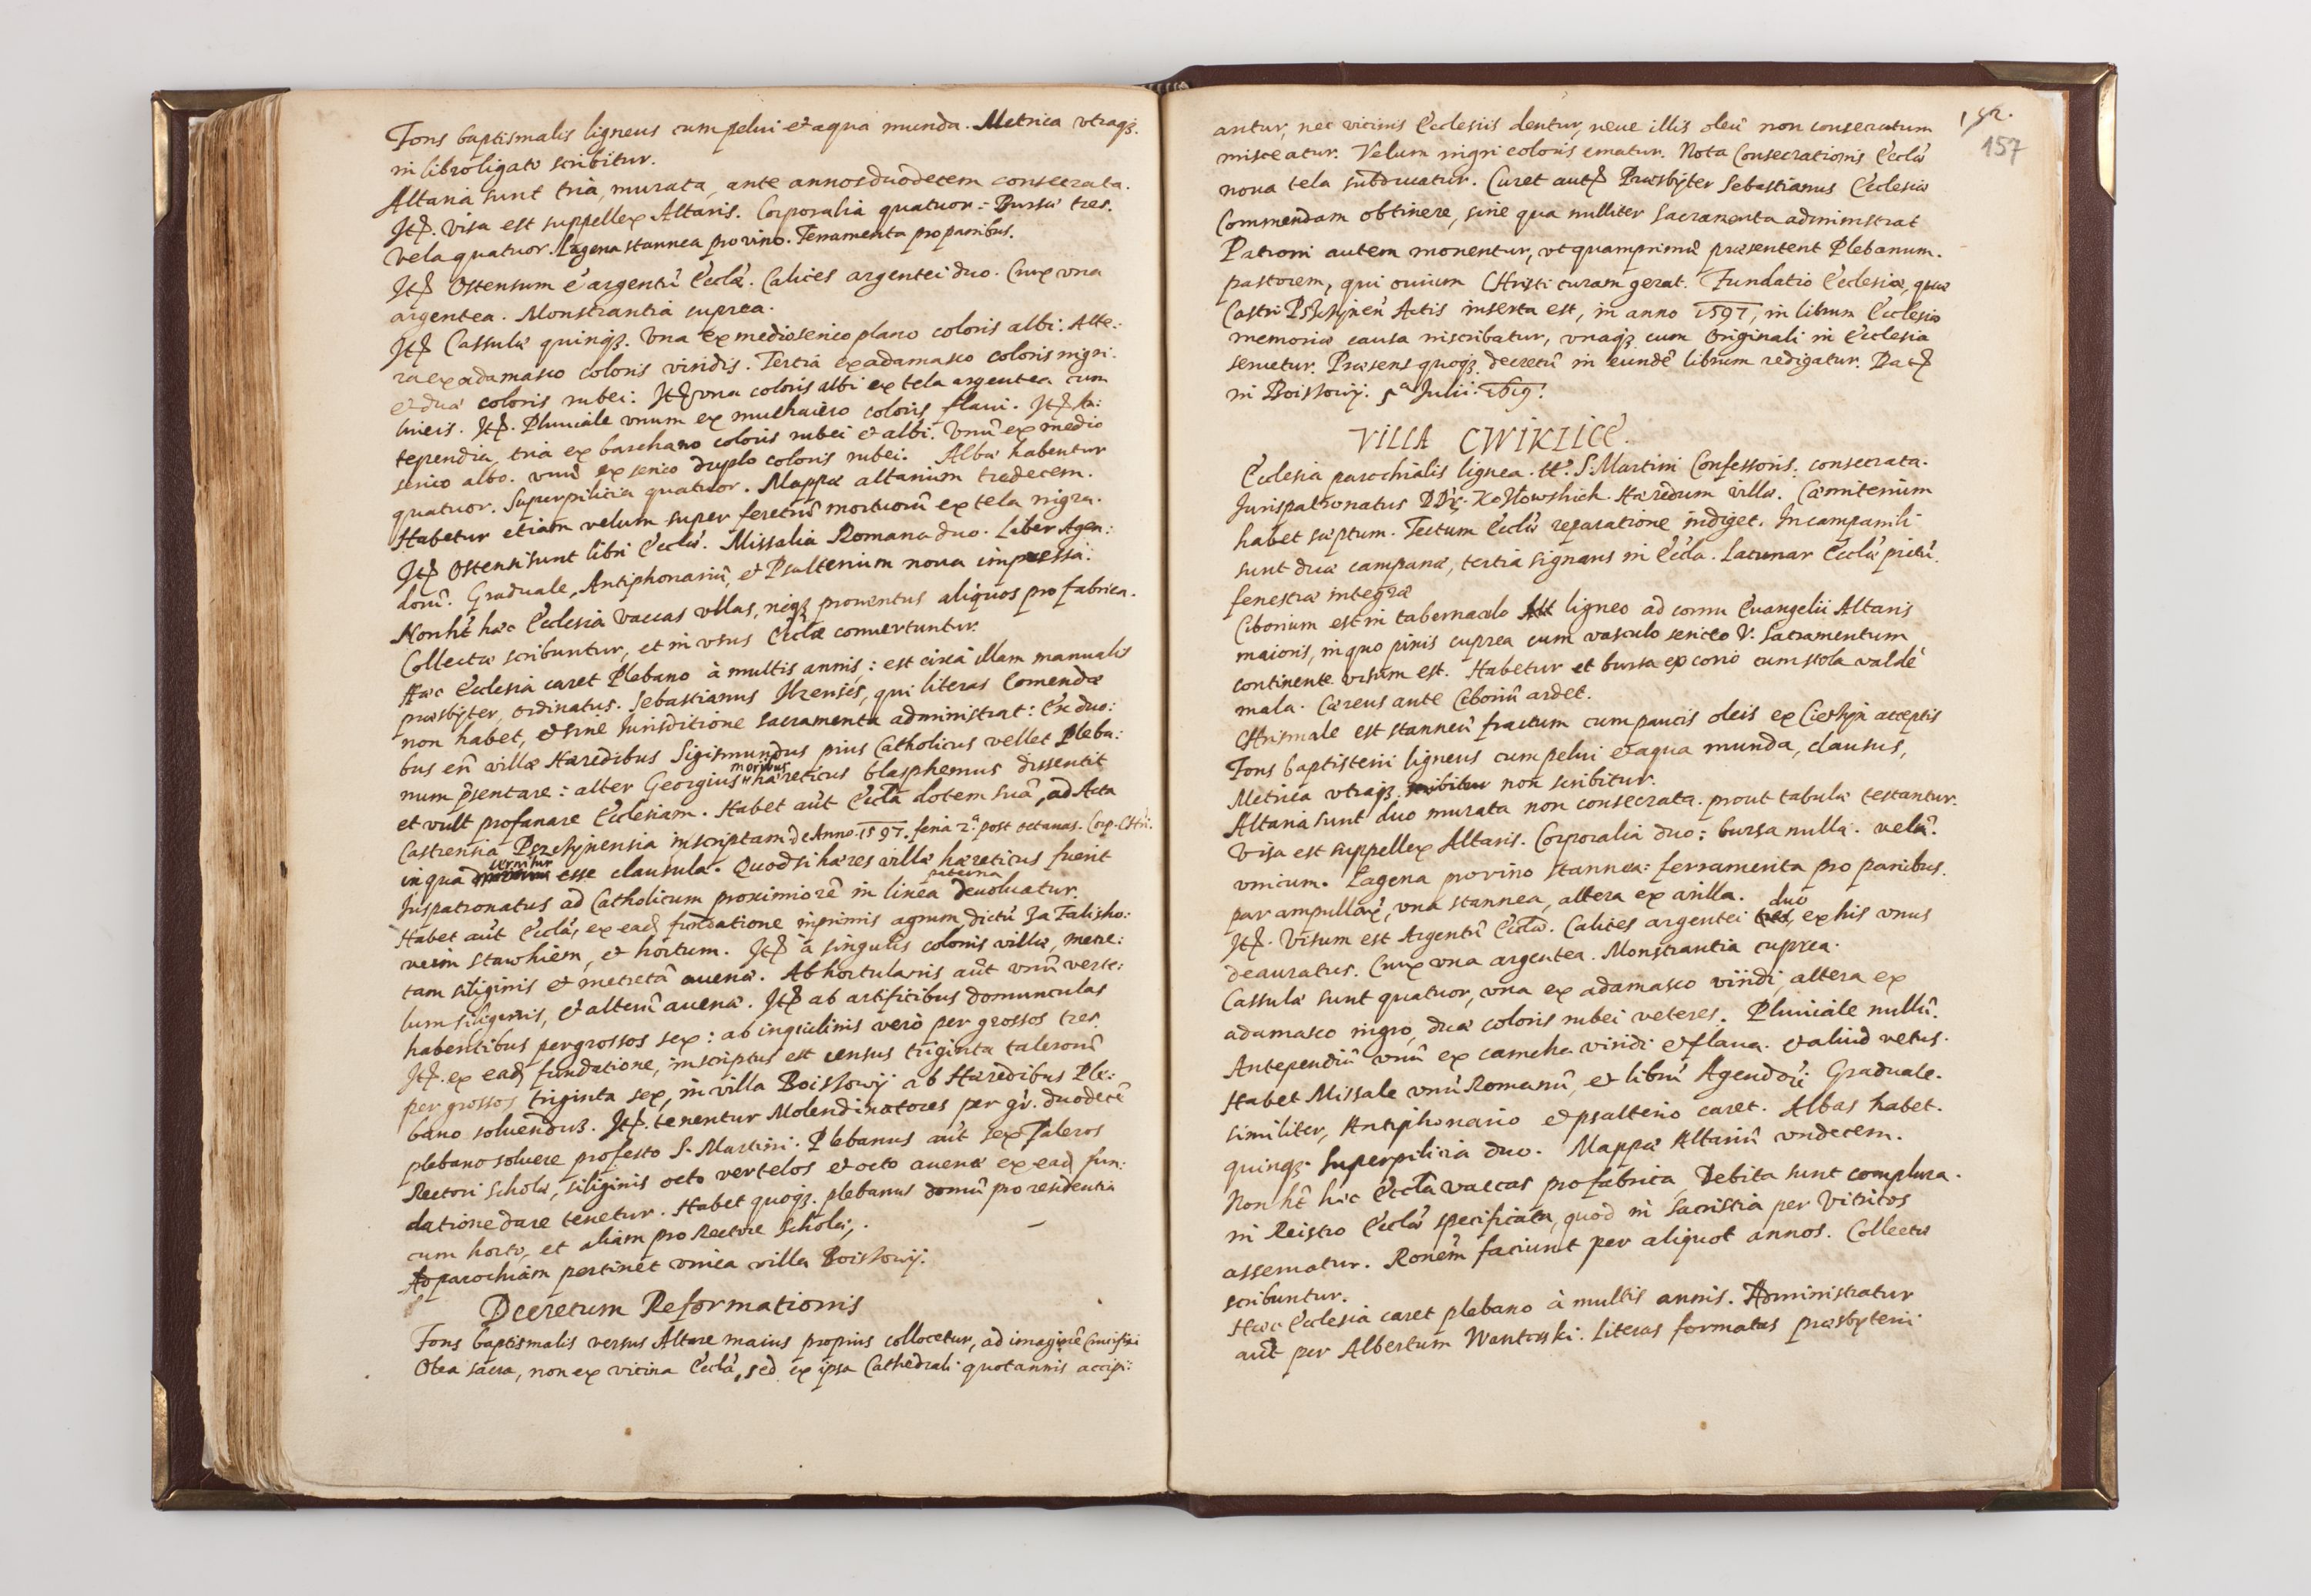 Fons baptismalis ligneus cum pelui et aqua munda. Metrica vtraqȝ.
in libro ligato scribitur.
Altaria sunt tria, murata, ante annos duodecem consecrata.
Itē. Visa est suppellex Altaris. Corporalia quatuor: Bursæ tres.
Vela quatuor. Lagena stannea pro vino. Ferramenta pro panibus.
Itē Ostensum ē argentū Eccłæ. Calices argentei duo. Crux vna
argentea. Monstrantia cuprea.
Itē Cassulæ quinqȝ. Vna ex medioserico plano coloris albi. Alte:
ra ex adamasco coloris viridis. Tertia ex adamasco coloris nigri.
et duæ coloris rubei: Itē vna coloris albi ex tela argentea cum
Itē. Pluuiale vnum ex muchaiero coloris flaui. Itē An:
tependia, tria ex barchano coloris rubei et albi. Vnū ex medio
serico albo. vnū ex serico duplo coloris rubei. Albæ habentur
quatuor. Superpilicia quatuor. Mappæ altarium tredecem.
Habetur etiam velum super feretrū mortuorū ex tela nigra.
Itē Ostensi sunt libri Eccłæ. Missalia Romana duo. Liber Agen:
dorū. Graduale, Antiphonariū, et Psalterium noua impressa.
Non hēt hæc Ecclesia vaccas vllas, neqȝ prouentus aliquos pro fabrica.
Collectæ scribuntur, et in vsus Eccłæ conuertuntur.
Hæc Ecclesia caret Plebano à multis annis: est circa illam manualis
præsbyter, ordinatus. Sebastianus Ilzensis, qui literas Comendæ
non habet, et sine Iurisditione sacramenta administrat: Ex duo:
bus eñ villæ Hæredibus Sigismundus pius Catholicus vellet Pleba:
num p̃sentare: alter Georgius moribus hæreticus blasphemus dissentit
et vult profanare Ecclesiam. Habet aūt Eccła dotem suā, ad Acta
Castrensia Pszczÿnensia inscriptam de Anno 1597. feria 2.ª post octauas. Corp. Chri.
in qua cernitur esse clausula. Quod si hæres villæ hæreticus fuerit
Iuspatronatus ad Catholicum proximiorē in linea paterna deuoluatur.
Habet aūt Eccła, ex eadē fundatione inprimis agrum dictū Za Falisho:
veim stawhiem, et hortum. Itē à singulis colonis villæ, mere:
tam siliginis et metretā auenæ. Ab hortulanis aūt vnū verte:
lum siliginis, et alterū auenæ. Itē ab artificibus domunculas
habentibus per grossos sex: ab inquilinis vero per grossos tres.
Itē. ex eadē fundatione, inscriptus est census triginta talerorū
per grossos triginta sex, in villa Boiszowÿ ab Hæredibus Ple:
bano soluendus. Itē. tenentur Molendinatores per gr. duodecē
plebano soluere pro festo S. Martini. Plebanus aūt sex Taleros
Rectori Scholæ, siliginis octo vertelos et octo auenæ ex eadē fun:
datione dare tenetur. Habet quoqȝ. plebanus domū pro residentia
cum horto, et aliam pro Rectore Scholæ.
Ad parochiam pertinet vnica villa Boiszowÿ.
Decretum Reformationis
Fons baptismalis versus Altare maius propius collocetur, ad imaginē Crucifixi
Olea sacra, non ex vicina Eccła, sed ex ipsa Cathedrali quotannis accipi:
152.
157
antur, nec vicinis Ecclesiis dentur, neue illis oleū non consecratum
misceatur. Velum nigri coloris ematur. Nota Consecrationis Eccłæ
noua tela subducatur. Curet autē Præsbÿter Sebastianus Ecclesiæ
Commendam obtinere, sine qua nulliter Sacramenta administrat
Patroni autem monentur, vt quamprimū præsentent Plebanum.
pastorem, qui ouium Christi curam gerat. Fundatio Ecclesiæ, quæ
Castri Pszczÿnen̄ Actis inserta est, in anno 1597, in librum Ecclesiæ
memoriæ causa inscribatur, vnaqȝ cum Originali in Ecclesia
seruetur. Præsens quoqȝ decretū in eundē librum redigatur. Datē
in Boiszowÿ. 5ª Julii. 1619.
VILLA CWIKLICE.
Ecclesia parochialis lignea. tt. S. Martini Confessoris. consecrata.
Iurispatronatus DD. Kozłowskich. Hæredum villæ. Cæmiterium
habet sæptum. Tectum Eccłæ reparatione indiget. In campanili
sunt duæ campanæ, tertia signans in Eccła. Lacunar Eccłæ pictū.
fenestræ integræ
Ciborium est in tabernaculo ligneo ad cornu Euangelii Altaris
maioris, in quo pixis cuprea cum vasculo sericeo V. Sacramentum
continente visum est. Habetur et bursa ex corio cum stola valdè
mala. Cereus ante Ciboriū ardet.
Chrismale est stanneū fractum cum paucis oleis ex Cieshyn acceptis
Fons baptisterii ligneus cum pelui et aqua munda, clausus,
Metrica vtraqȝ. non scribitur.
Altaria sunt duo murata non consecrata. prout tabulæ testantur.
Visa est suppellex Altaris. Corporalia duo: bursa nulla. velū.
vnicum. Lagena pro vino stannea: ferramenta pro panibus.
par ampullarū, vna stannea, altera ex arilla.
Itē. Visum est Argentū Eccłæ. Calices argentei duo, ex his vnus
deauratus. Crux vna argentea. Monstrantia cuprea.
Cassulæ sunt quatuor, vna ex adamasco viridi, altera ex
adamasco nigro, duæ coloris rubei veteres. Pluuiale nullū.
Antependiū vnū ex camcha viridi et flaua. et aliud vetus.
Habet Missale vnū Romanū, et librū Agendorū Graduale.
similiter, Antiphonario et psalterio caret. Albas habet.
quinqȝ. Superpilicia duo. Mappæ Altariū vndecem.
Non hēt hæc Eccła vaccas pro fabrica, Debita sunt complura.
in Reistro Eccłæ specificata, quod in Sacristia per Vitricos
asseruatur. Ronem̄ faciunt per aliquot annos. Collectæ
scribuntur.
Hæc Ecclesia caret plebano à multis annis. Administratur
aūt per Albertum Wantoski. Literas formatas præsbyterii